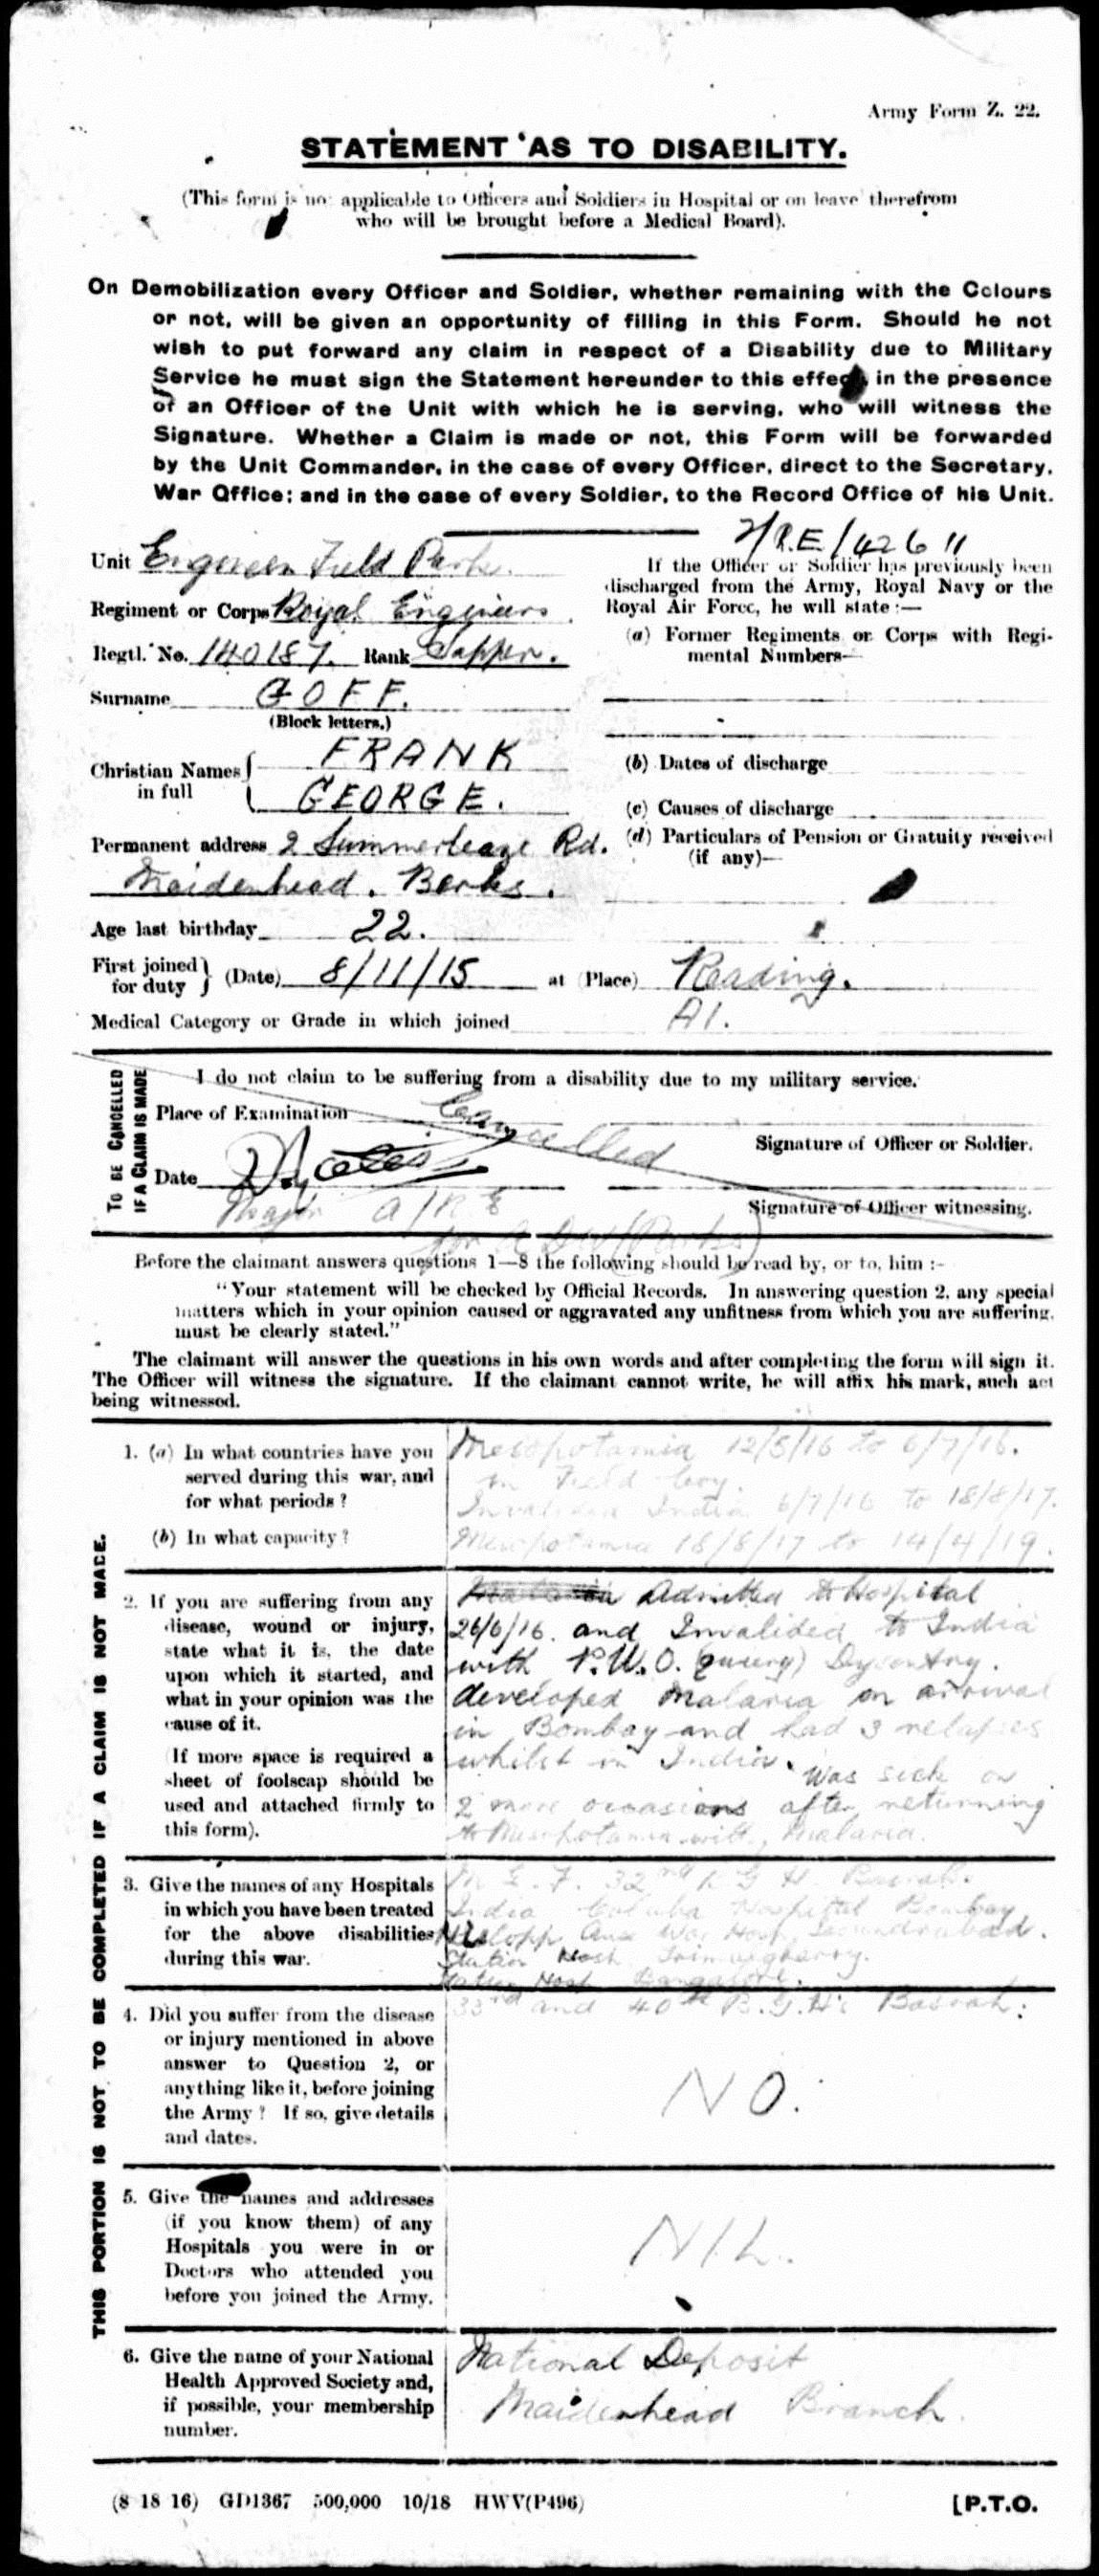 Army Form Z. 22.
STATEMENT AS TO DISABILITY.
(This form is no applicable to Officers and Soldiers in Hospital or on leave therefrom
who will be brought before a Medical Board).
On Demobilization every Officer and Soldier, whether remaining with the Colours
or not, will be given an opportunity of filling in this Form. Should he not
wish to put forward any claim in respect of a Disability due to Military
Service he must sign the Statement hereunder to this effect, in the presence
of an Officer of the Unit with which he is serving, who will witness the
Signature. Whether a Claim is made or not, this Form will be forwarded
by the Unit Commander, in the case of every Officer, direct to the Secretary,
War Office; and in the case of every Soldier, to the Record Office of his Unit.
2/R.E/42611
Unit Engineer Field Park.
Regiment or Corps Royal Engineers
Regtl. No. 140187. Rank Sapper.
Surname GOFF.
(Block letters.)
Christian Names
in full
FRANK
GEORGE.
Permanent address 2 Summerleaze Rd.
Maidenhead. Berks.
Age last birthday 22.
If the Officer or Soldier has previously been
discharged from the Army, Royal Navy or the
Royal Air Force, he will state :—
(a) Former Regiments or Corps with Regi-
mental Numbers—
(b) Dates of discharge
(c) Causes of discharge
(d) Particulars of Pension or Gratuity received
(if any)—
First joined
for duty
(Date) 8/11/15 at (Place) Reading.
Medical Category or Grade in which joined A1.
TO BE CANCELLED
IF A CLAIM IS MADE
I do not claim to be suffering from a disability due to my military service.
Place of Examination
Cancelled
Signature of Officer or Soldier.
Date
Major a/R E
Signature of Officer witnessing.
for A D W (Parks)
Before the claimant answers questions 1—8 the following should be read by, or to, him :-
"Your statement will be checked by Official Records. In answering question 2, any special
matters which in your opinion caused or aggravated any unfitness from which you are suffering,
must be clearly stated."
The claimant will answer the questions in his own words and after completing the form will sign it.
The Officer will witness the signature. If the claimant cannot write, he will affix his mark, such act
being witnessed.
THIS PORTION IS NOT TO BE COMPLETED IF A CLAIM IS NOT MADE.
1. (a) In what countries have you
served during this war, and
for what periods ?
(b) In what capacity ?
Mesopotamia 12/5/16 to 6/7/16.
in Field Coy.
Invalided India 6/7/16 to 18/8/17.
Mesopotamia 18/8/17 to 14/4/19.
2. If you are suffering from any
disease, wound or injury,
state what it is, the date
upon which it started, and
what in your opinion was the
cause of it.
If more space is required a
sheet of foolscap should be
used and attached firmly to
this form).
Admitted to Hospital
26/6/16. and Invalided to India
with P.U.O. (query) Dysentry.
developed Malaria on arrival
in Bombay and had 3 relapses
whilst in India. Was sick on
2 more occasions after returning
to Mesopotamia with, Malaria.
3. Give the names of any Hospitals
in which you have been treated
for the above disabilities
during this war.
M. E. F. 32nd B G H Basrah.
India Colaba Hospital Bombay
War Hosp. Secunderabad.
Station Hosp. Trimulgherry.
Station Hosp Bangalore.
33rd and 40th B.G.H's Basrah.
4. Did you suffer from the disease
or injury mentioned in above
answer to Question 2, or
anything like it, before joining
the Army ? If so, give details
and dates.
NO.
5. Give the names and addresses
(if you know them) of any
Hospitals you were in or
Doctors who attended you
before you joined the Army.
NIL.
6. Give the name of your National
Health Approved Society and,
if possible, your membership
number.
National Deposit
Maidenhead Branch.
(8 18 16) GD1367 500,000 10/18 HWV(P496)
[P.T.O.